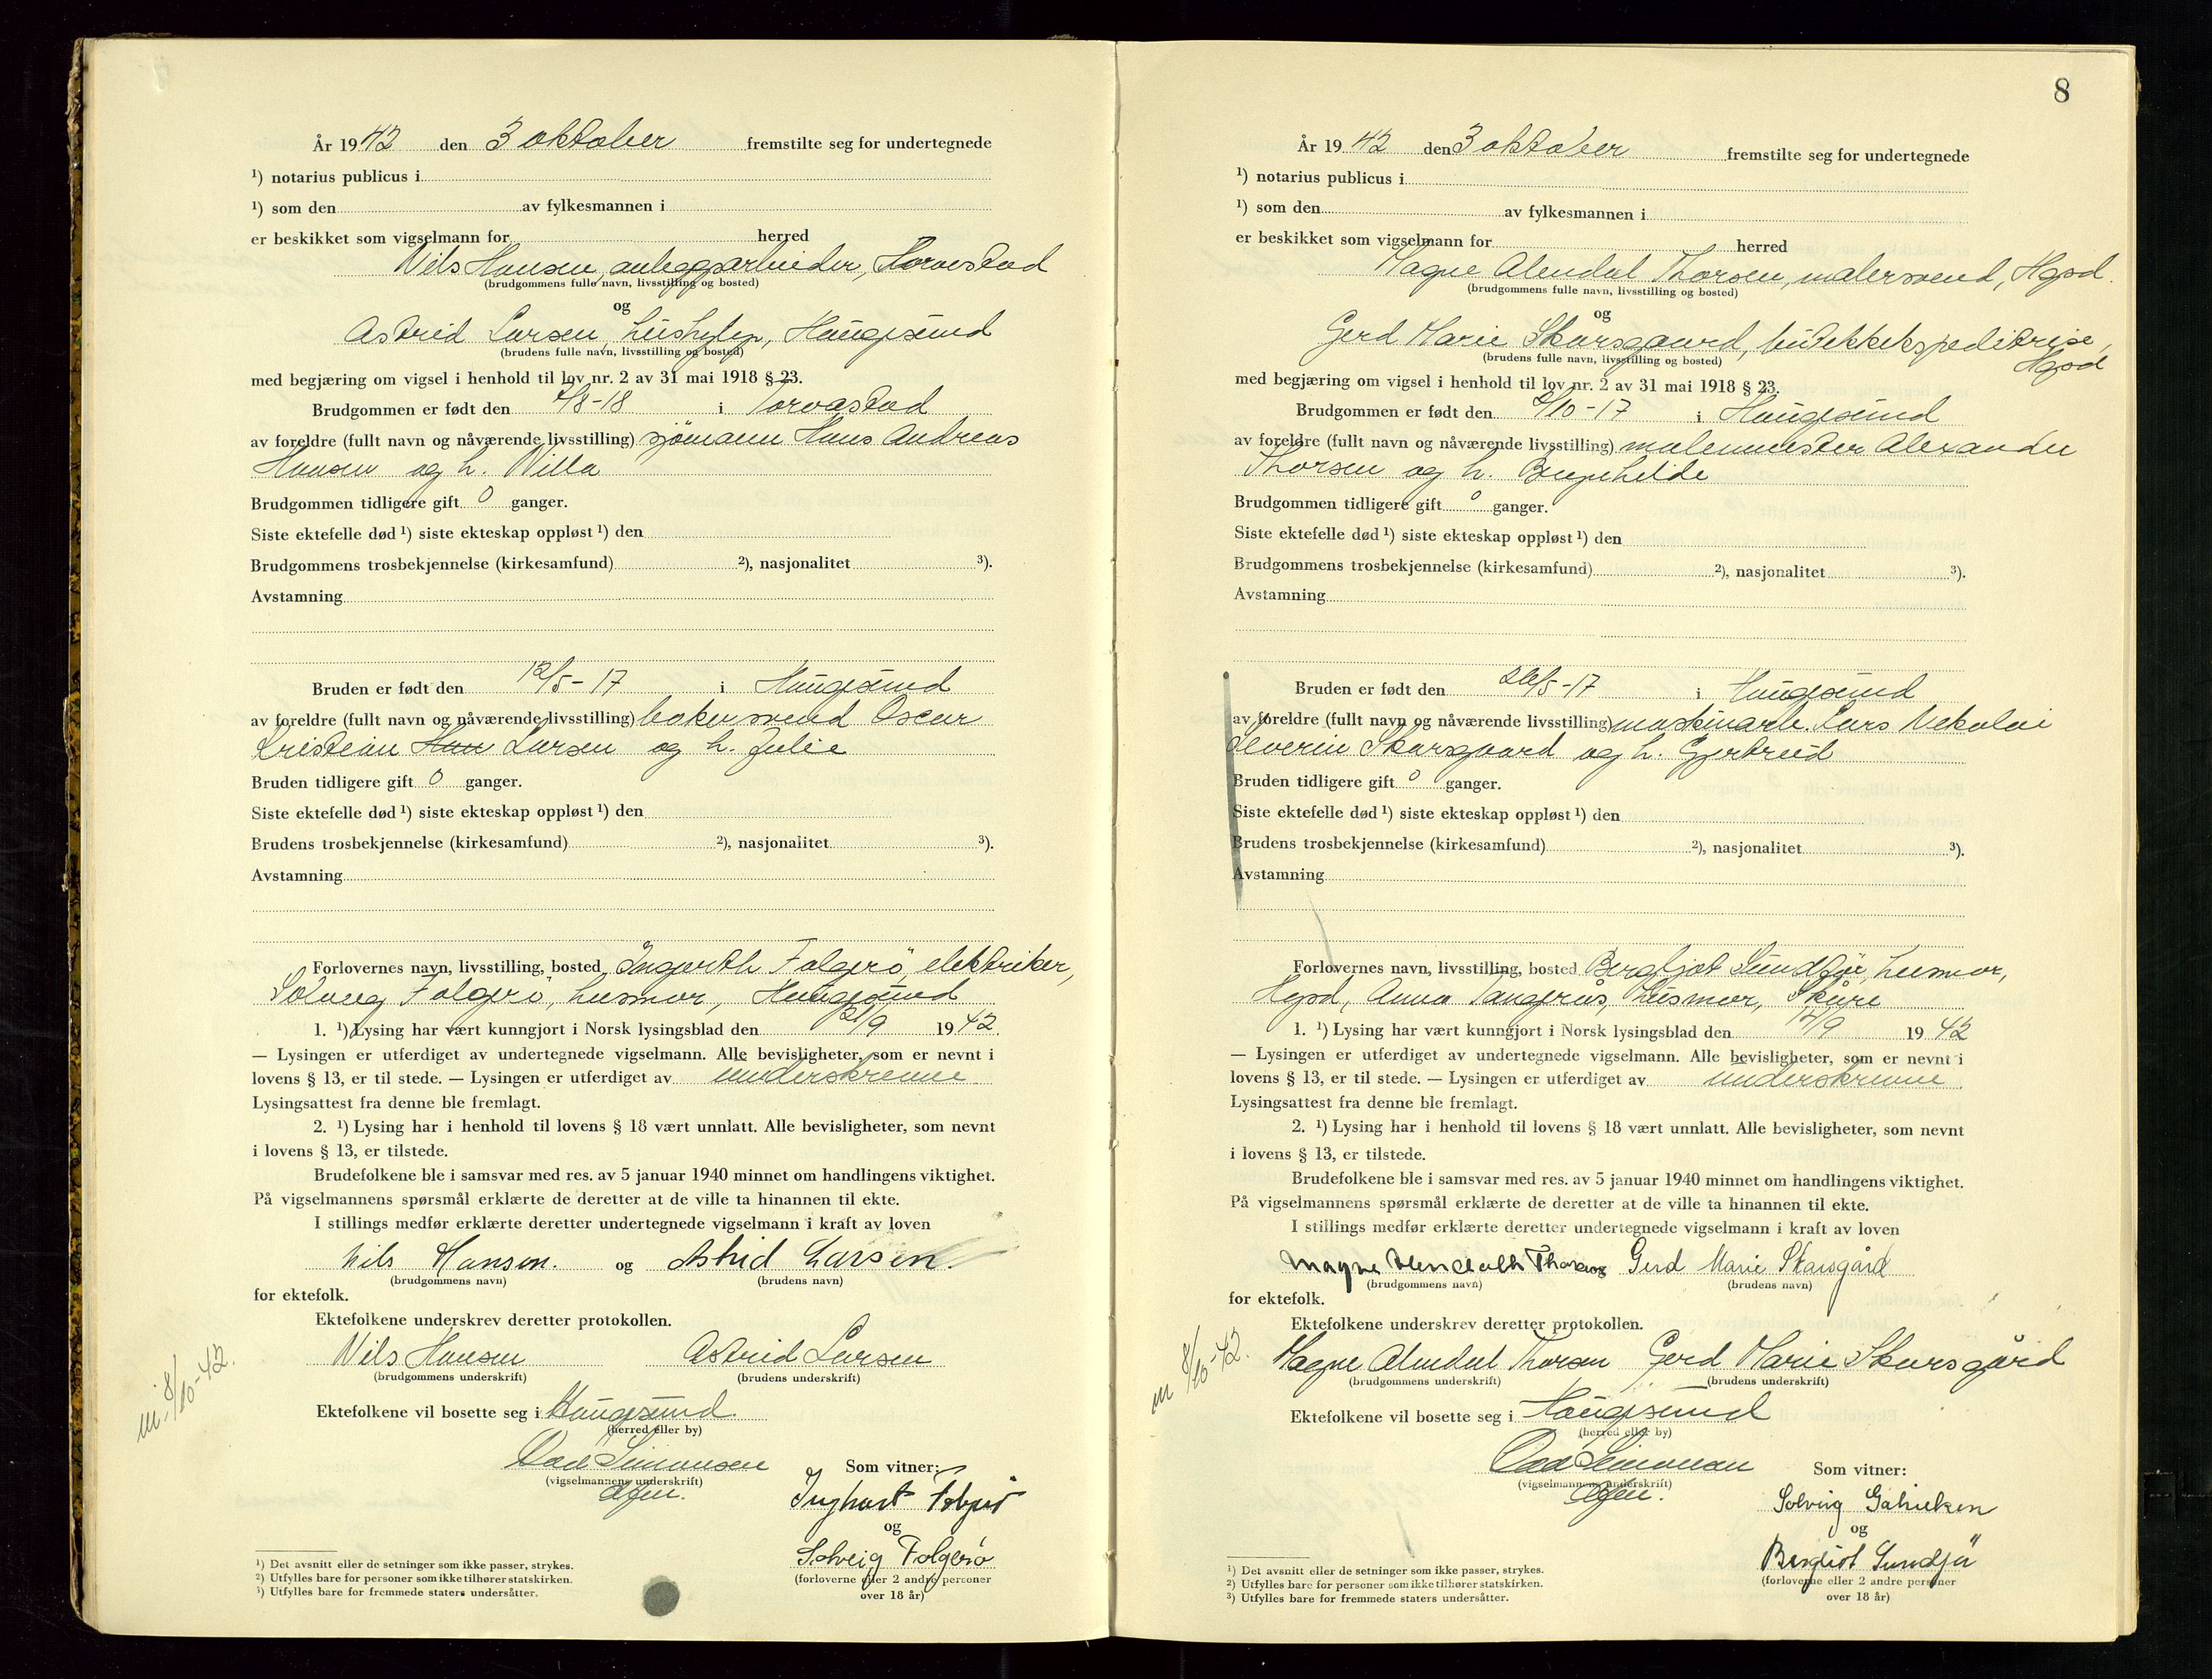 År 1942 den 3 oktober fremstilte seg for undertegnede
¹) notarius publicus i
¹) som den av fylkesmannen i
er beskikket som vigselmann for herred
Nils Hansen, anleggsarbeider, Torvestad
(brudgommens fulle navn, livsstilling og bosted)
og
Astrid Larsen, hushjelp, Haugesund
(brudens fulle navn, livsstilling og bosted)
med begjæring om vigsel i henhold til lov nr. 2 av 31 mai 1918 § 23.
Brudgommen er født den /8-18 i Torvastad
av foreldre (fullt navn og nåværende livsstilling) sjömann Hans Andreas
Hansen og h. Willa
Brudgommen tidligere gift 0 ganger.
Siste ektefelle død ¹) siste ekteskap oppløst ¹) den
Brudgommens trosbekjennelse (kirkesamfund) ²), nasjonalitet ³).
Avstamning
Bruden er født den 12/5-17 i Haugesund
av foreldre (fullt navn og nåværende livsstilling) bakersvend Oscar
Kristian Han Larsen og h. Julie
Bruden tidligere gift 0 ganger.
Siste ektefelle død ¹) siste ekteskap oppløst ¹) den
Brudens trosbekjennelse (kirkesamfund) ²), nasjonalitet ³).
Avstamning
Forlovernes navn, livsstilling, bosted Folgerö, elektriker,
Solveig Folgerö, husmor, Haugesund
1. ¹) Lysing har vært kunngjort i Norsk lysingsblad den /9 1942
— Lysingen er utferdiget av undertegnede vigselmann. Alle bevisligheter, som er nevnt i
lovens § 13, er til stede. — Lysingen er utferdiget av underskrevne
Lysingsattest fra denne ble fremlagt.
2. ¹) Lysing har i henhold til lovens § 18 vært unnlatt. Alle bevisligheter, som nevnt
i lovens § 13, er tilstede.
Brudefolkene ble i samsvar med res. av 5 januar 1940 minnet om handlingens viktighet.
På vigselmannens spørsmål erklærte de deretter at de ville ta hinannen til ekte.
I stillings medfør erklærte deretter undertegnede vigselmann i kraft av loven
Nils Hansen. og Astrid Larsen.
(brudgommens navn) (brudens navn)
for ektefolk.
Ektefolkene underskrev deretter protokollen.
Nils Hansen Astrid Larsen
(brudgommens underskrift) (brudens underskrift)
m. 8/10-42.
Ektefolkene vil bosette seg i Haugesund
(herred eller by)
Simonsen
(vigselmannens underskrift)
Som vitner:
Folgerö
og
Solveig Folgerö
(forloverne eller 2 andre personer
over 18 år)
¹) Det avsnitt eller de setninger som ikke passer, strykes.
²) Utfylles bare for personer som ikke tilhører statskirken.
³) Utfylles bare for fremmede staters undersåtter.
8
År 1942 den 3 oktober fremstilte seg for undertegnede
¹) notarius publicus i
¹) som den av fylkesmannen i
er beskikket som vigselmann for herred
Magne Alendal Thorsen, malersvend, Hgsd.
(brudgommens fulle navn, livsstilling og bosted)
og
Gerd Marie Skarsgaard, butikkekspeditrise,
Hgsd
(brudens fulle navn, livsstilling og bosted)
med begjæring om vigsel i henhold til lov nr. 2 av 31 mai 1918 § 23.
Brudgommen er født den /10-17 i Haugesund
av foreldre (fullt navn og nåværende livsstilling) malermester Alexander
Thorsen og h.
Brudgommen tidligere gift 0 ganger.
Siste ektefelle død ¹) siste ekteskap oppløst ¹) den
Brudgommens trosbekjennelse (kirkesamfund) ²), nasjonalitet ³).
Avstamning
Bruden er født den 26/5-17 i Haugesund
av foreldre (fullt navn og nåværende livsstilling) maskinarb. Lars Nekolai
Severin Skarsgaard og h. Gjertrud
Bruden tidligere gift 0 ganger.
Siste ektefelle død ¹) siste ekteskap oppløst ¹) den
Brudens trosbekjennelse (kirkesamfund) ²), nasjonalitet ³).
Avstamning
Forlovernes navn, livsstilling, bosted Bergljot Sundför, husmor,
Hgsd, Anna Tangerås, husmor, Skåre
1. ¹) Lysing har vært kunngjort i Norsk lysingsblad den /9 1942
— Lysingen er utferdiget av undertegnede vigselmann. Alle bevisligheter, som er nevnt i
lovens § 13, er til stede. — Lysingen er utferdiget av underskrevne
Lysingsattest fra denne ble fremlagt.
2. ¹) Lysing har i henhold til lovens § 18 vært unnlatt. Alle bevisligheter, som nevnt
i lovens § 13, er tilstede.
Brudefolkene ble i samsvar med res. av 5 januar 1940 minnet om handlingens viktighet.
På vigselmannens spørsmål erklærte de deretter at de ville ta hinannen til ekte.
I stillings medfør erklærte deretter undertegnede vigselmann i kraft av loven
Magne Thorsen og Gerd Marie Skarsgård
(brudgommens navn) (brudens navn)
for ektefolk.
Ektefolkene underskrev deretter protokollen.
Magne Alendal Thorsen Gerd Marie Skarsgård
(brudgommens underskrift) (brudens underskrift)
m 8/10-42.
Ektefolkene vil bosette seg i Haugesund
(herred eller by)
Simonsen
(vigselmannens underskrift)
Som vitner:
Solveig
og
Bergliot
(forloverne eller 2 andre personer
over 18 år)
¹) Det avsnitt eller de setninger som ikke passer, strykes.
²) Utfylles bare for personer som ikke tilhører statskirken.
³) Utfylles bare for fremmede staters undersåtter.